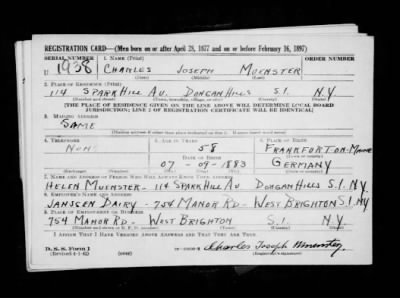 REGISTRATION CARD—(Men born on or after April 28, 1877 and on or before February 16, 1897)
SERIAL NUMBER 1. NAME (Print) ORDER NUMBER
U 1938 CHARLES JOSEPH MUENSTER
(First) (Middle) (Last)
2. PLACE OF RESIDENCE (Print)
114 SPARK HILL AV. DONGAN HILLS S.I. N.Y
(Number and street) (Town, township, village, or city) (County) (State)
[THE PLACE OF RESIDENCE GIVEN ON THE LINE ABOVE WILL DETERMINE LOCAL BOARD
JURISDICTION; LINE 2 OF REGISTRATION CERTIFICATE WILL BE IDENTICAL]
3. MAILING ADDRESS
SAME
[Mailing address if other than place indicated on line 2. If same insert word same]
4. TELEPHONE 5. AGE IN YEARS 6. PLACE OF BIRTH
NONE 58 FRANKFORT ON MAINE
DATE OF BIRTH
07-09-1883 GERMANY
(Mo.) (Day) (Yr.)
7. NAME AND ADDRESS OF PERSON WHO WILL ALWAYS KNOW YOUR ADDRESS
HELEN MUENSTER - 114 SPARK HILL AV DONGAN HILLS S.I. N.Y.
8. EMPLOYER'S NAME AND ADDRESS
JANSSEN DAIRY - 754 MANOR RD - WEST BRIGHTON S.I. N.Y
9. PLACE OF EMPLOYMENT OR BUSINESS
754 MANOR RD - WEST BRIGHTON S.I. N.Y.
(Number and street or R. F. D. number) (Town) (County) (State)
I AFFIRM THAT I HAVE VERIFIED ABOVE ANSWERS AND THAT THEY ARE TRUE.
D. S. S. Form 1
(Revised 4-1-42) (over) Charles Joseph Muenster